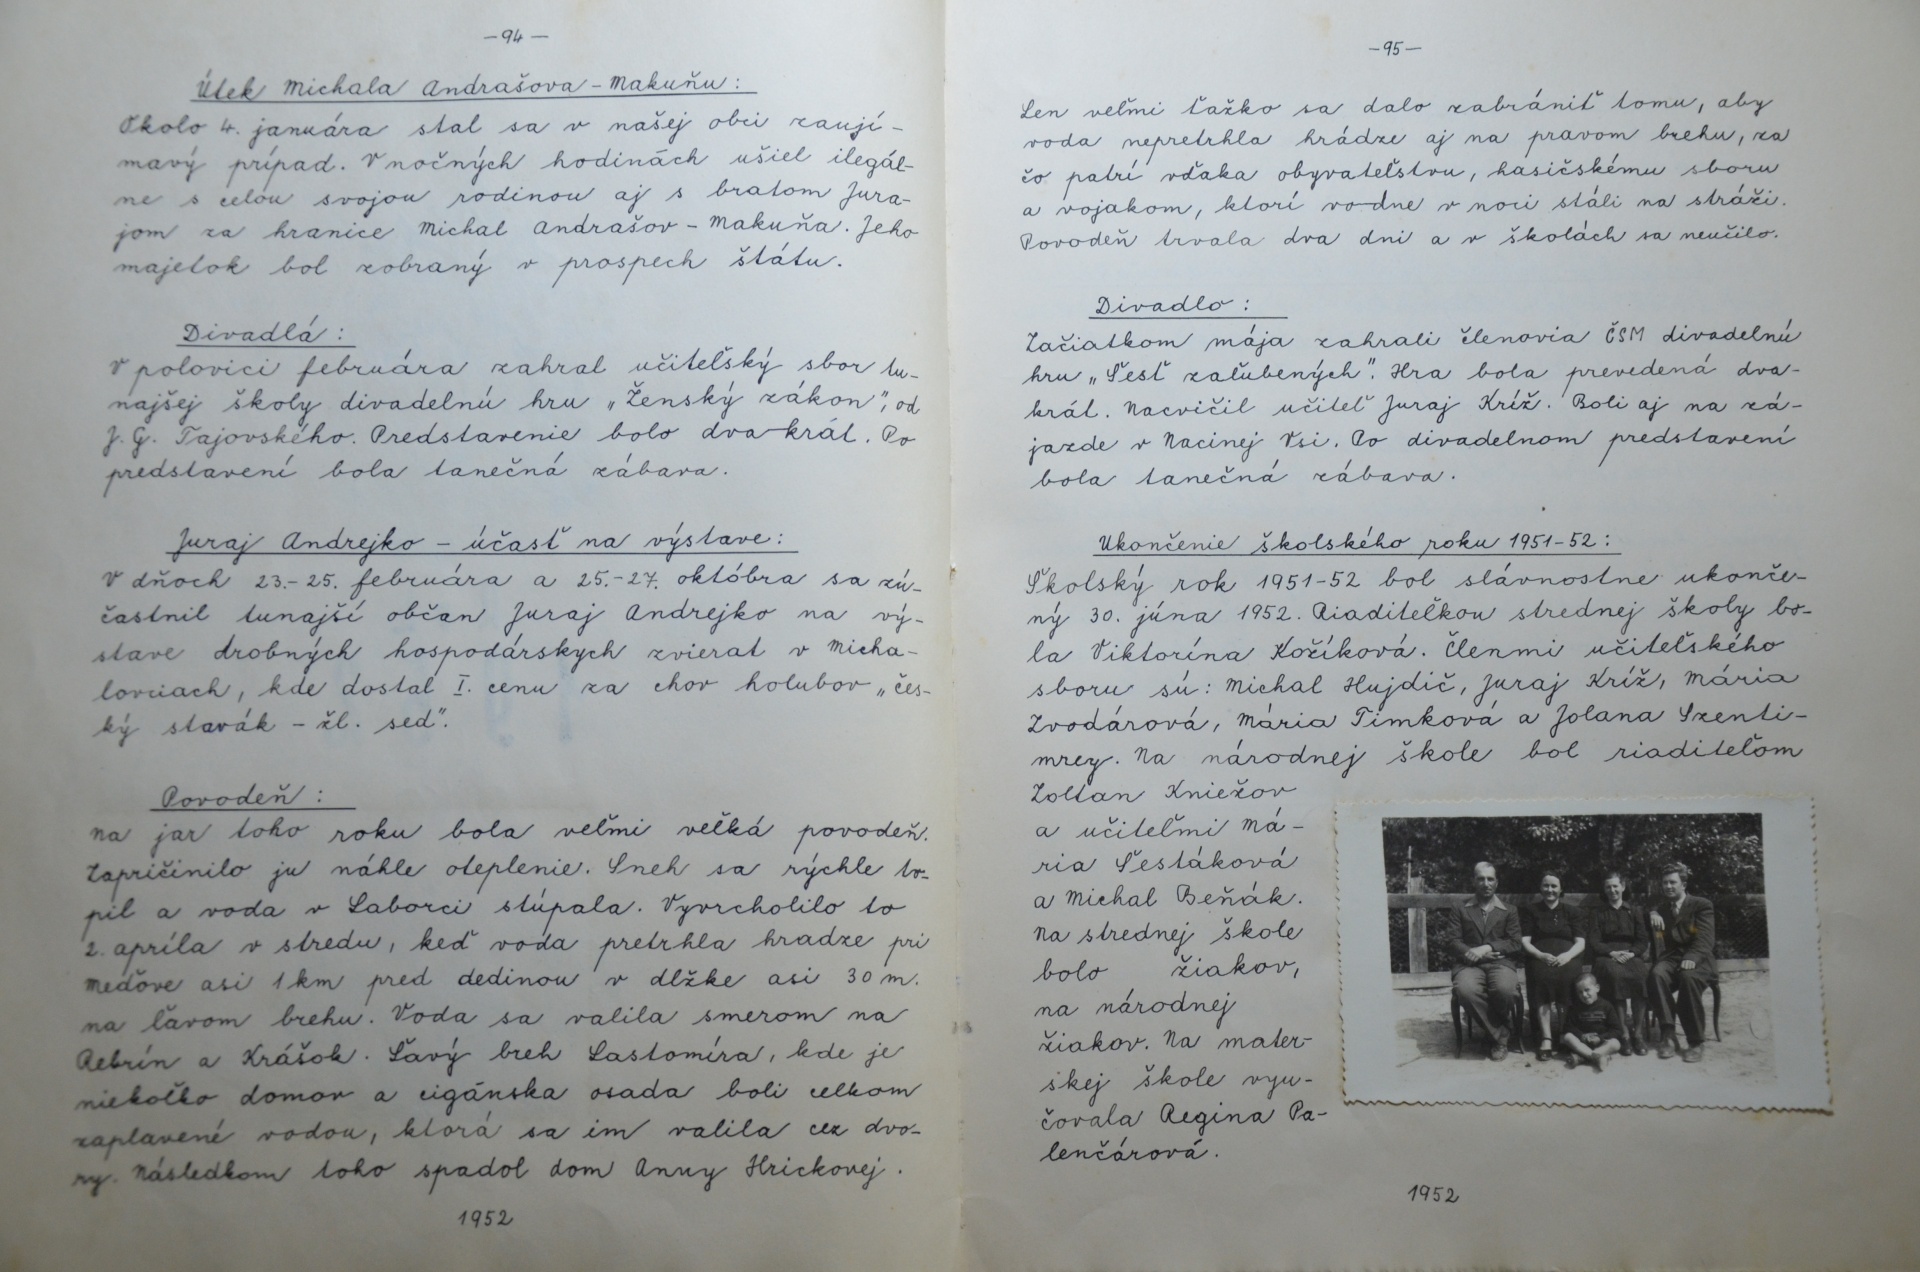 -94-
Útek Michala Andrašova-Makuňu:
Okolo 4. januára stal sa v našej obci zaují-
mavý prípad. V nočných hodinách ušiel ilegál-
ne s celou svojou rodinou aj s bratom Jura-
jom za hranice Michal Andrašov-Makuňa. Jeho
majetok bol zobraný v prospech štátu.
Divadlá:
V polovici februára zahral učiteľský sbor tu-
najšej školy divadelnú hru „Ženský zákon", od
J. G. Tajovského. Predstavenie bolo dva-krát. Po
predstavení bola tanečná zábava.
Juraj Andrejko - účasť na výstave:
V dňoch 23.-25. februára a 25.-27. októbra sa zú-
častnil tunajší občan Juraj Andrejko na vý-
stave drobných hospodárskych zvierat v Micha-
lovciach, kde dostal I. cenu za chov holubov „čes-
ký stavák - žl. sed".
Povodeň:
Na jar toho roku bola veľmi veľká povodeň.
Zapričinilo ju náhle oteplenie. Sneh sa rýchle to-
pil a voda v Laborci stúpala. Vyvrcholilo to
2. apríla v stredu, keď voda pretrhla hradze pri
Meďove asi 1 km pred dedinou v dlžke asi 30 m.
na ľavom brehu. Voda sa valila smerom na
Rebrín a Krášok. Ľavý breh Lastomíra, kde je
niekoľko domov a cigánska osada boli celkom
zaplavené vodou, ktorá sa im valila cez dvo-
ry. Následkom toho spadol dom Anny Hrickovej.
1952
-95-
Len veľmi ťažko sa dalo zabrániť tomu, aby
voda nepretrhla hrádze aj na pravom brehu, za
čo patrí vďaka obyvateľstvu, hasičskému sboru
a vojakom, ktorí vo-dne v noci stáli na stráži.
Povodeň trvala dva dni a v školách sa neučilo.
Divadlo:
Začiatkom mája zahrali členovia ČSM divadelnú
hru „Šesť zaľubených". Hra bola prevedená dva-
krát. Nacvičil učiteľ Juraj Kríž. Boli aj na zá-
jazde v Nacinej Vsi. Po divadelnom predstavení
bola tanečná zábava.
Ukončenie školského roku 1951-52:
Školský rok 1951-52 bol slávnostne ukonče-
ný 30. júna 1952. Riaditeľkou strednej školy bo-
la Viktorína Kožíková. Členmi učiteľského
sboru sú: Michal Hujdič, Juraj Kríž, Mária
Zvodárová, Mária Timková a Jolana Szenti-
mrey. Na národnej škole bol riaditeľom
Zoltan Kniežov
a učiteľmi Má-
ria Šestáková
a Michal Beňák.
Na strednej škole
bolo žiakov,
na národnej
žiakov. Na mater-
skej škole vyu-
čovala Regina Pa-
lenčárová.
1952